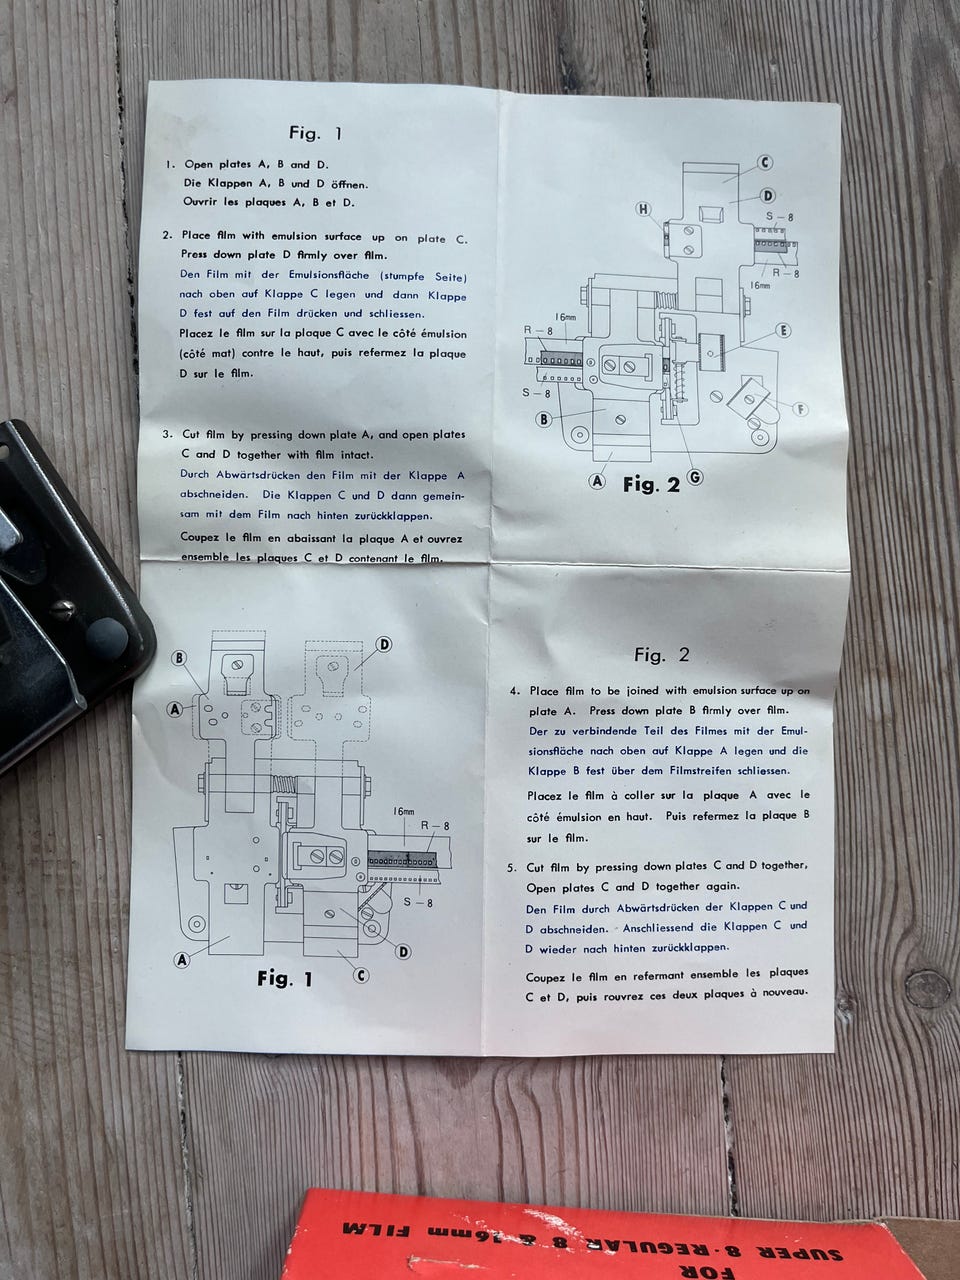 Fig. 1
1. Open plates A, B and D.
Die Klappen A, B und D öffnen.
Ouvrir les plaques A, B et D.
2. Place film with emulsion surface up on plate C.
Press down plate D firmly over film.
Den Film mit der Emulsionsfläche (stumpfe Seite)
nach oben auf Klappe C legen und dann Klappe
D fest auf den Film drücken und schliessen.
Placez le film sur la plaque C avec le côté émulsion
(côté mat) contre le haut, puis refermez la plaque
D sur le film.
3. Cut film by pressing down plate A, and open plates
C and D together with film intact.
Durch Abwärtsdrücken den Film mit der Klappe A
abschneiden. Die Klappen C und D dann gemein-
sam mit dem Film nach hinten zurückklappen.
Coupez le film en abaissant la plaque A et ouvrez
ensemble les plaques C et D contenant le film.
B
D
A
16mm
R - 8
S - 8
A
D
C
Fig. 1
C
D
H
S - 8
R - 8
16mm
16mm
R - 8
E
S - 8
F
B
A
G
Fig. 2
Fig. 2
4. Place film to be joined with emulsion surface up on
plate A. Press down plate B firmly over film.
Der zu verbindende Teil des Filmes mit der Emul-
sionsfläche nach oben auf Klappe A legen und die
Klappe B fest über dem Filmstreifen schliessen.
Placez le film à coller sur la plaque A avec le
côté émulsion en haut. Puis refermez la plaque B
sur le film.
5. Cut film by pressing down plates C and D together,
Open plates C and D together again.
Den Film durch Abwärtsdrücken der Klappen C und
D abschneiden. Anschliessend die Klappen C und
D wieder nach hinten zurückklappen.
Coupez le film en refermant ensemble les plaques
C et D, puis rouvrez ces deux plaques à nouveau.
FOR
SUPER 8·REGULAR 8 & 16mm FILM